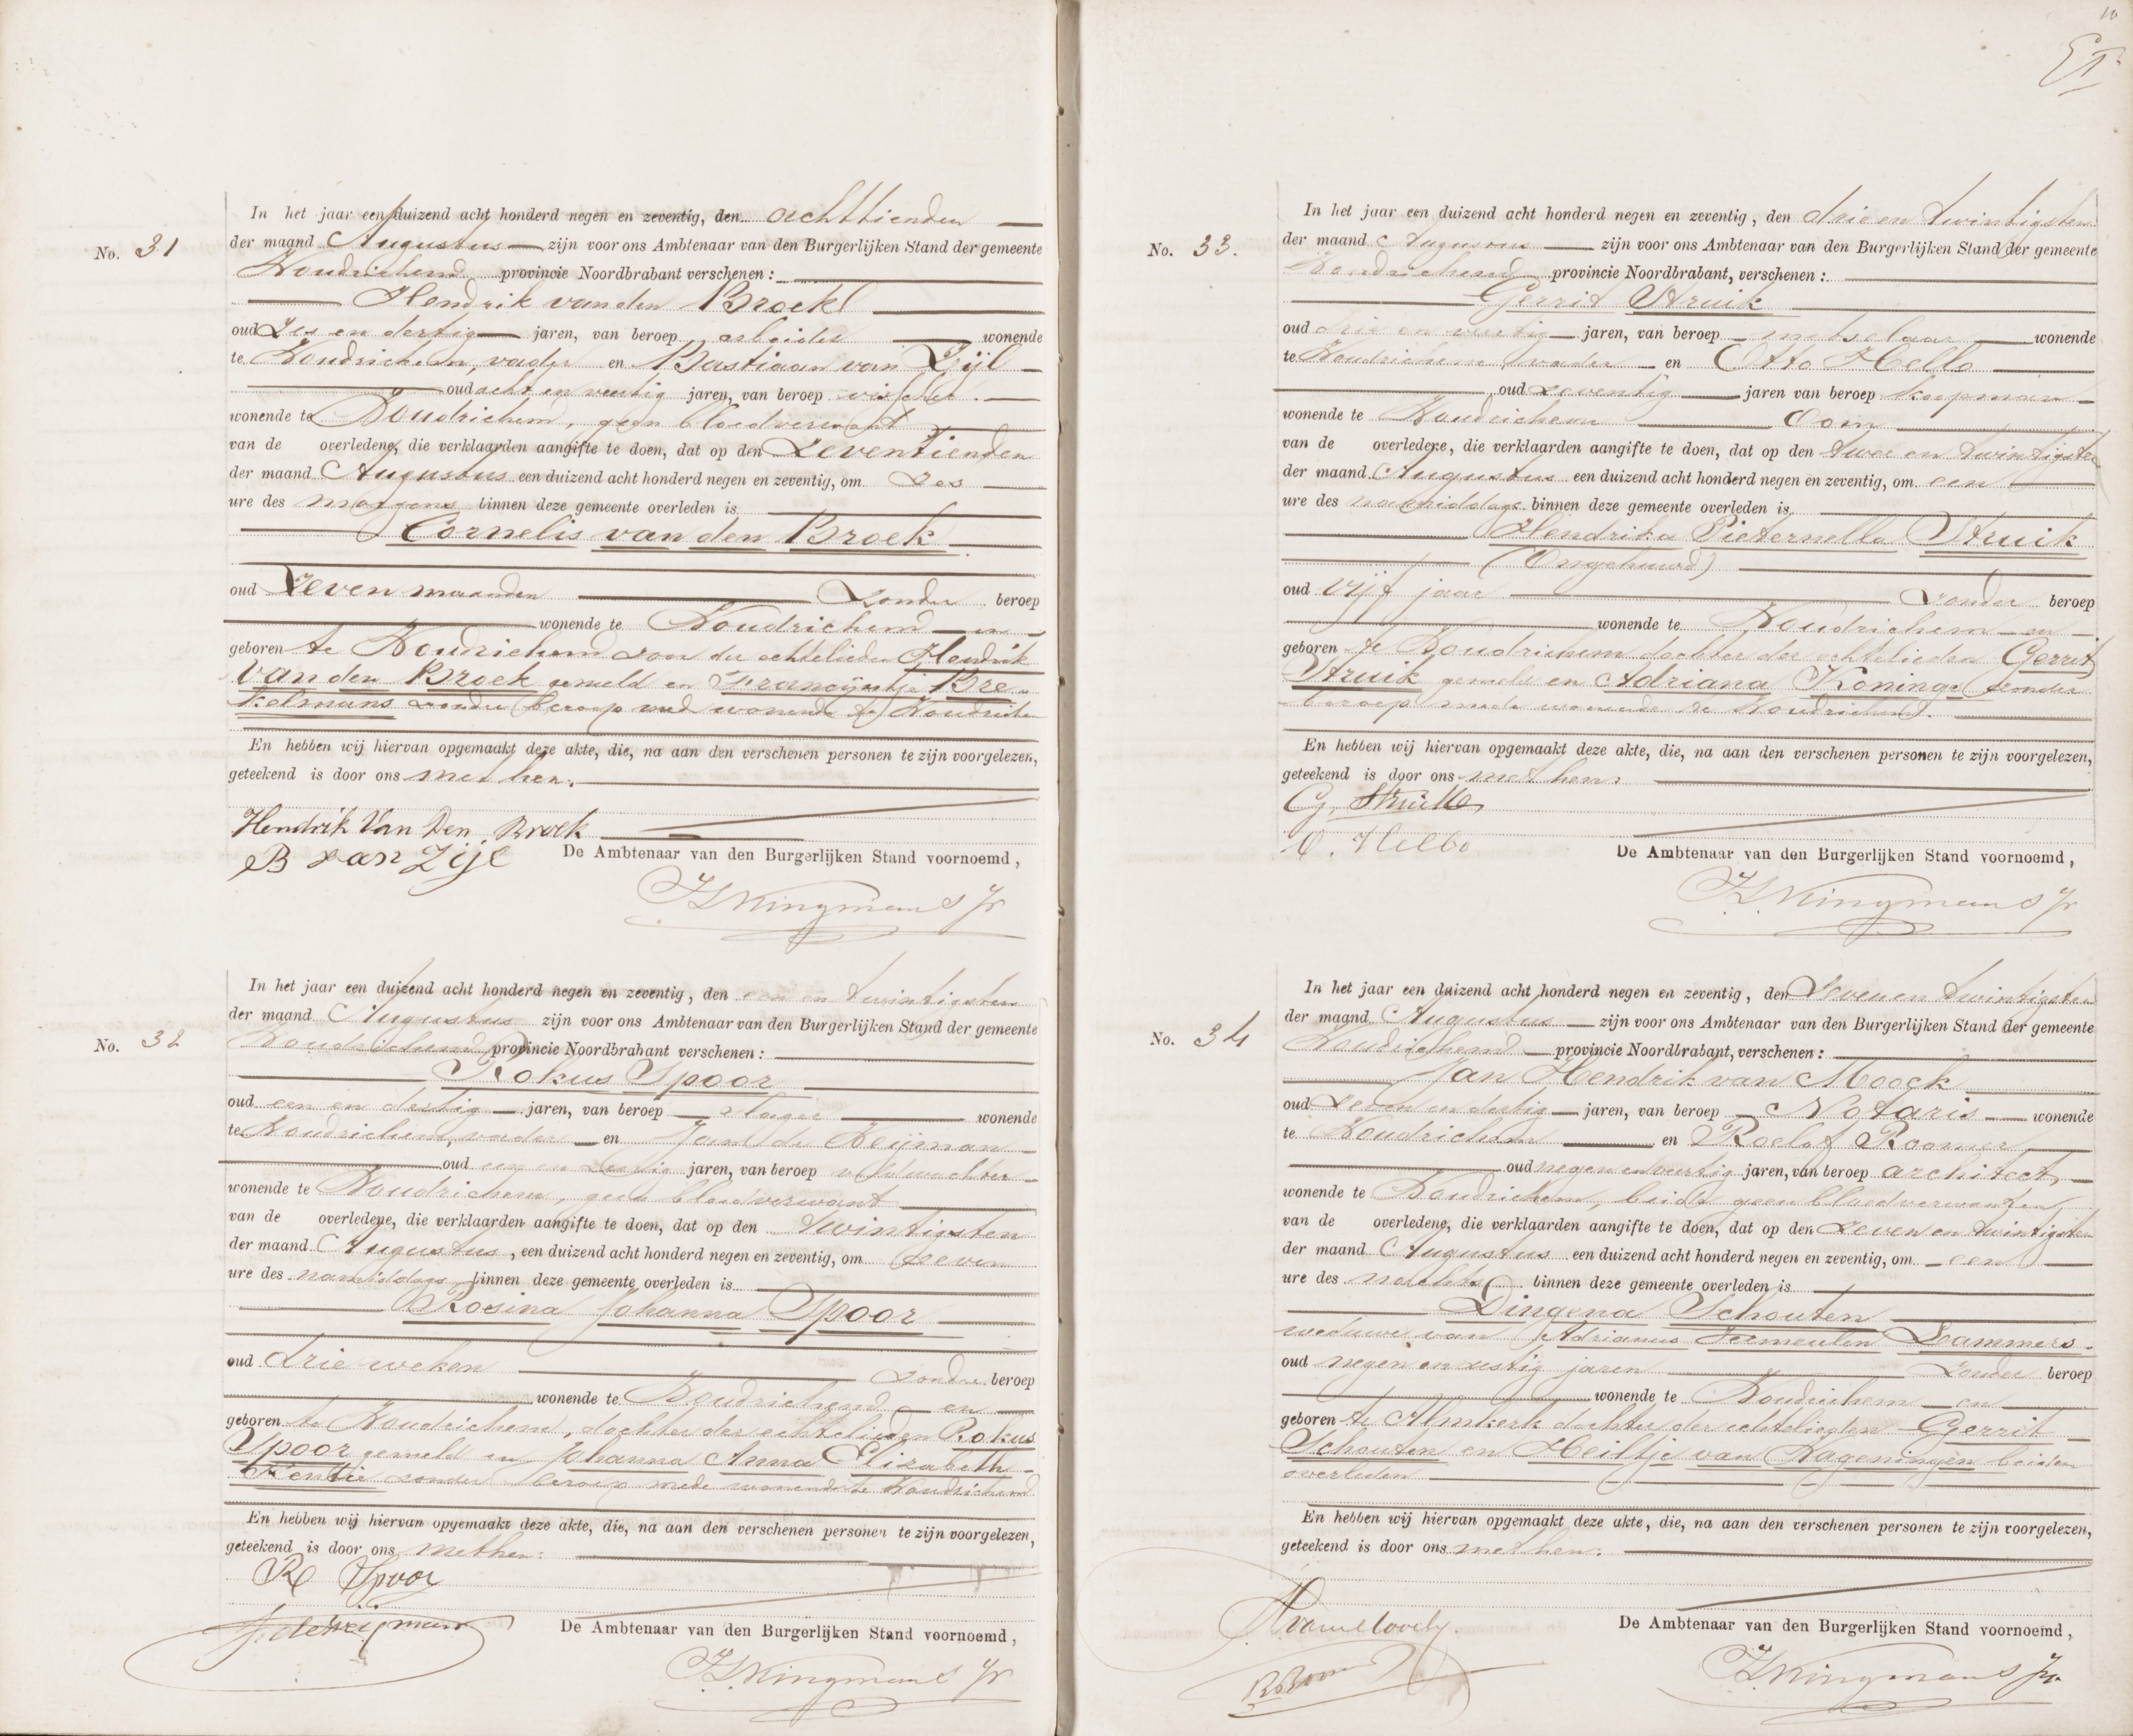 10
No. 31
In het jaar een duizend acht honderd negen en zeventig, den achttienden
der maand Augustus zijn voor ons Ambtenaar van den Burgerlijken Stand der gemeente
Woudrichem provincie Noordbrabant verschenen:
Hendrik van den Broek
oud zes en dertig jaren, van beroep arbeider wonende
te Woudrichem, vader en Bastiaan van Zijl
oud acht en veertig jaren, van beroep visscher
wonende te Woudrichem, geen bloedverwant
van de overledene, die verklaarden aangifte te doen, dat op den Zeventienden
der maand Augustus een duizend acht honderd negen en zeventig, om Zes
ure des morgens binnen deze gemeente overleden is
Cornelis van den Broek
oud Zeven maanden Zonder beroep
wonende te Woudrichem en
geboren te Woudrichem zoon der echtelieden Hendrik
van den Broek gemeld en Francijntje Bre-
kelmans zonder beroep med wonende te Woudrichem
En hebben wij hiervan opgemaakt deze akte, die, na aan den verschenen personen te zijn voorgelezen,
geteekend is door ons met hen.
Hendrik Van Den Broek
B van Zijl
De Ambtenaar van den Burgerlijken Stand voornoemd,
Kingmans Jr
No. 32
In het jaar een duizend acht honderd negen en zeventig, den een en twintigsten
der maand Augustus zijn voor ons Ambtenaar van den Burgerlijken Stand der gemeente
Woudrichem provincie Noordbrabant verschenen:
Rokus Spoor
oud een en dertig jaren, van beroep slager wonende
te Woudrichem, vader en Jan de Heijman
oud een en jaren, van beroep veldwachter
wonende te Woudrichem, geen bloedverwant
van de overledene, die verklaarden aangifte te doen, dat op den twintigsten
der maand Augustus, een duizend acht honderd negen en zeventig, om zeven
ure des namiddags binnen deze gemeente overleden is
Rosina Johanna Spoor
oud drie weken zonder beroep
wonende te Woudrichem en
geboren te Woudrichem, dochter der echtelieden Rokus
Spoor gemeld en Johanna Anna Elizabeth
zonder beroep mede wonende te Woudrichem
En hebben wij hiervan opgemaakt deze akte, die, na aan den verschenen personen te zijn voorgelezen,
geteekend is door ons met hen.
R Spoor
De Ambtenaar van den Burgerlijken Stand voornoemd,
Kingmans Jr
No. 33.
In het jaar een duizend acht honderd negen en zeventig, den drie en twintigsten
der maand Augustus zijn voor ons Ambtenaar van den Burgerlijken Stand der gemeente
Woudrichem provincie Noordbrabant, verschenen:
Gerrit Struik
oud drie en veertig jaren, van beroep metselaar wonende
te Woudrichem vader en Otto Hello
oud zeventig jaren van beroep koopman
wonende te Woudrichem Oom
van de overledene, die verklaarden aangifte te doen, dat op den twee en twintigsten
der maand Augustus een duizend acht honderd negen en zeventig, om een
ure des namiddags binnen deze gemeente overleden is
Hendrika Pieternella Struik
(Ongehuwd)
oud vijf jaar zonder beroep
wonende te Woudrichem en
geboren te Woudrichem dochter der echtelieden Gerrit
Struik gemeld en Adriana Konings zonder
beroep mede wonende te Woudrichem.
En hebben wij hiervan opgemaakt deze akte, die, na aan den verschenen personen te zijn voorgelezen,
geteekend is door ons met hen.
G. Struik
De Ambtenaar van den Burgerlijken Stand voornoemd,
Kingmans Jr
No. 34
In het jaar een duizend acht honderd negen en zeventig, den Zeven en twintigsten
der maand Augustus zijn voor ons Ambtenaar van den Burgerlijken Stand der gemeente
Woudrichem provincie Noordbrabant, verschenen:
Jan Hendrik van Moock
oud Zeven en dertig jaren, van beroep Notaris wonende
te Woudrichem en Roelof Roomer
oud negen en veertig jaren, van beroep architect,
wonende te Woudrichem, beide geen bloedverwanten
van de overledene, die verklaarden aangifte te doen, dat op den Zeven en twintigsten
der maand Augustus een duizend acht honderd negen en zeventig, om een
ure des nachts binnen deze gemeente overleden is
Dingena Schouten
weduwe van Adrianus Vermeulen Lammers
oud negen en zestig jaren zonder beroep
wonende te Woudrichem en
geboren te Almkerk dochter der echtelieden Gerrit
Schouten en Heiltje van Wageningen beiden
overleden
En hebben wij hiervan opgemaakt deze akte, die, na aan den verschenen personen te zijn voorgelezen,
geteekend is door ons met hen.
De Ambtenaar van den Burgerlijken Stand voornoemd,
Kingmans Jr.